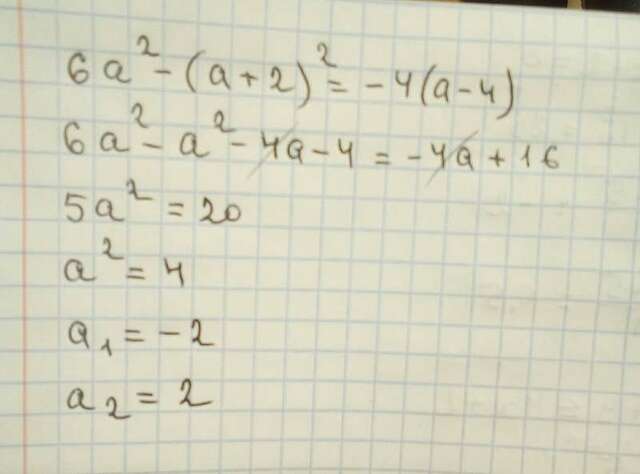 6a² - (a + 2)² = - 4(a - 4)
6a² - a² - 4a - 4 = - 4a + 16
5a² = 20
a² = 4
a₁ = - 2
a₂ = 2